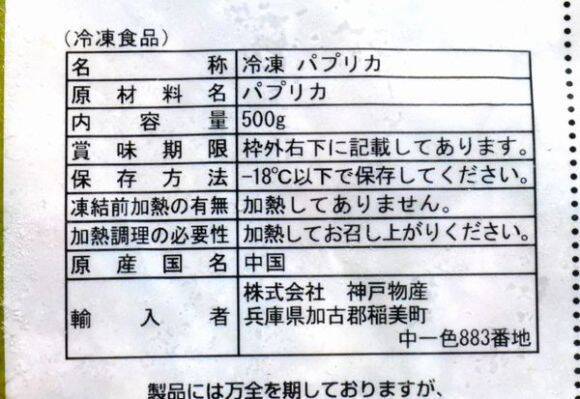 (冷凍食品)
名称 冷凍 パプリカ
原材料名 パプリカ
内容量 500g
賞味期限 枠外右下に記載してあります。
保存方法 -18℃以下で保存してください。
凍結前加熱の有無 加熱してありません。
加熱調理の必要性 加熱してお召し上がりください。
原産国名 中国
輸入者 株式会社 神戸物産
兵庫県加古郡稲美町
中一色883番地
製品には万全を期しておりますが、